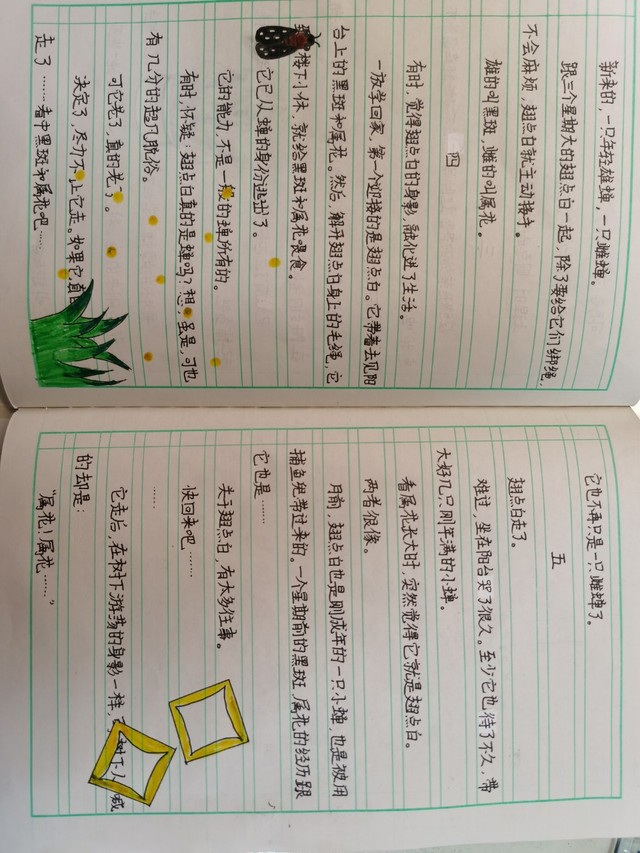 新来的,一只年轻雄蝉,一只雌蝉。
跟三个星期大的翅点白一起,除了要给它们绑绳,
不会麻烦,翅点白就主动接手。
雄的叫黑斑,雌的叫属花。
四
有时,觉得翅点白的身影,融化进了生活。
一放学回家,第一个迎接的是翅点白。它带着去见阳
台上的黑斑和属花。然后,解开翅点白身上的毛绳,它
楼下小休,就给黑斑和属花喂食。
它已从蝉的身份逃出了。
它的能力,不是一般的蝉所有的。
有时,怀疑:翅点白真的是蝉吗?想,虽是,可也
有几分的超凡脱俗。
可它老了,真的老了。
决定了,尽力不让它走。如果它真
走了……看中黑斑和属花吧……
它也不再只是一只雌蝉了。
五
翅点白走了。
难过,坐在阳台哭了很久。至少它也待了不久,带
大好几只刚年满的小蝉。
看属花长大时,突然觉得它就是翅点白。
两者很像。
月前,翅点白也是刚成年的一只小蝉,也是被用
捕鱼绳带过来的。一个星期前的黑斑、属花的经历跟
它也是……
关于翅点白,有太多往事。
快回来吧……
……
它走后,在树下游荡的身影一样,树下人喊
的却是:
“属花!属花……”。